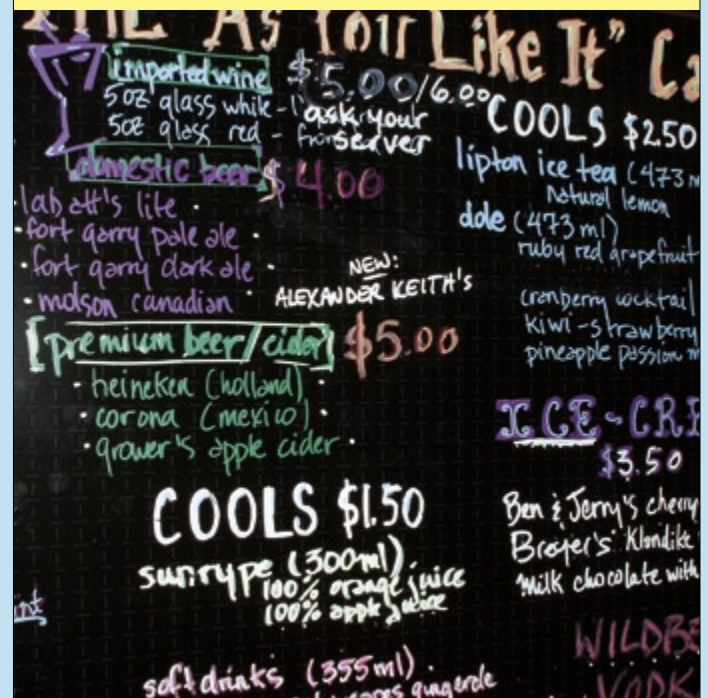 "As You Like It" Ca
imported wine $5.00/6.00
5oz glass white - ask your
5oz glass red - server
domestic beer $4.00
labatt's lite
fort garry pale ale
fort garry dark ale
molson canadian
NEW:
ALEXANDER KEITH'S
[premium beer/cider] $5.00
heineken (holland)
corona (mexico)
grower's apple cider
COOLS $1.50
sunrype (300ml)
100% orange juice
100% apple juice
soft drinks (355ml)
COOLS $2.50
lipton ice tea (473 m
natural lemon
dole (473 ml)
ruby red grapefruit
cranberry cocktail
kiwi-strawberry
pineapple passion m
ICE-CRE
$3.50
Ben & Jerry's cherry
Breyer's Klondike
milk chocolate with
WILDBE
VODK